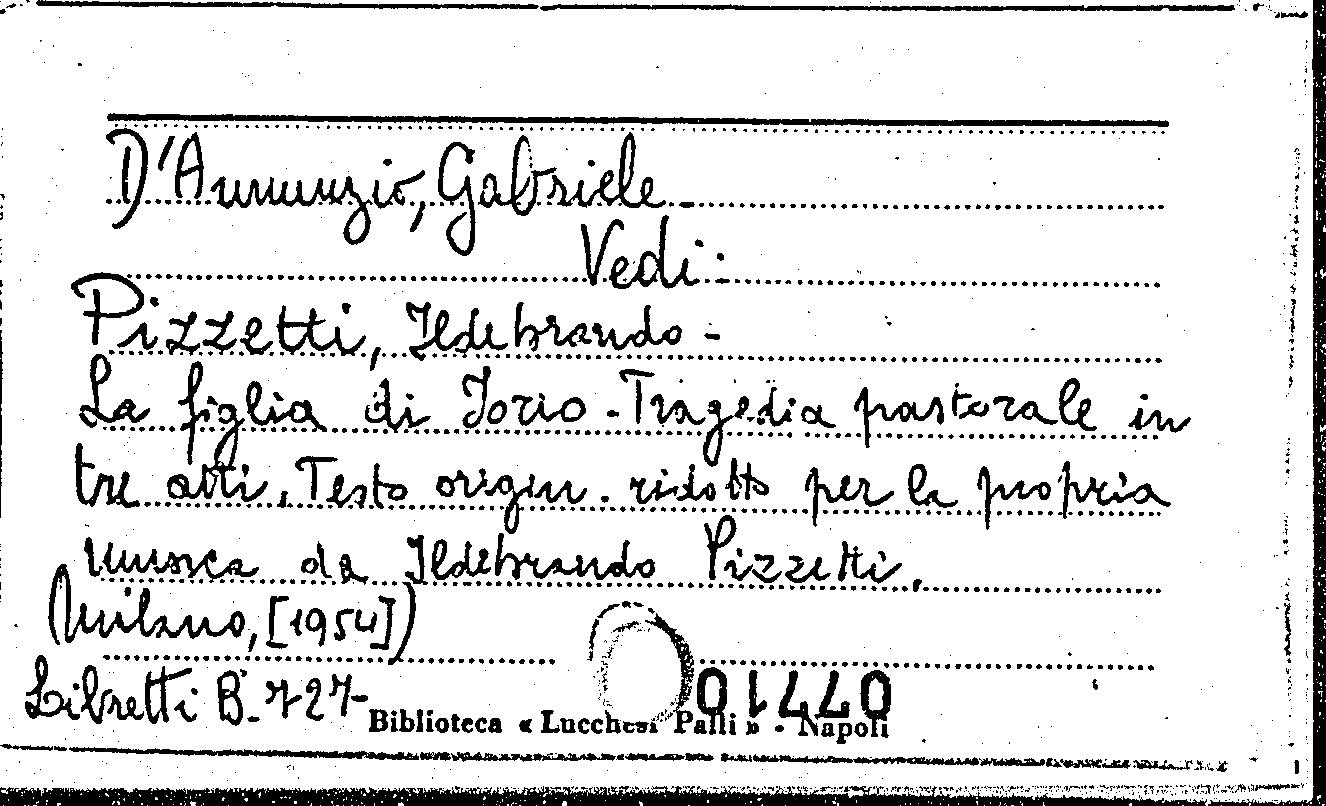 D'Annunzio, Gabriele -
Vedi:
Pizzetti, Ildebrando -
La figlia di Jorio - Tragedia pastorale in
tre atti. Testo origin. ridotto per la propria
musica da Ildebrando Pizzetti.
(Milano, [1954])
Libretti B. 727-
Biblioteca « Lucchesi Palli » - Napoli